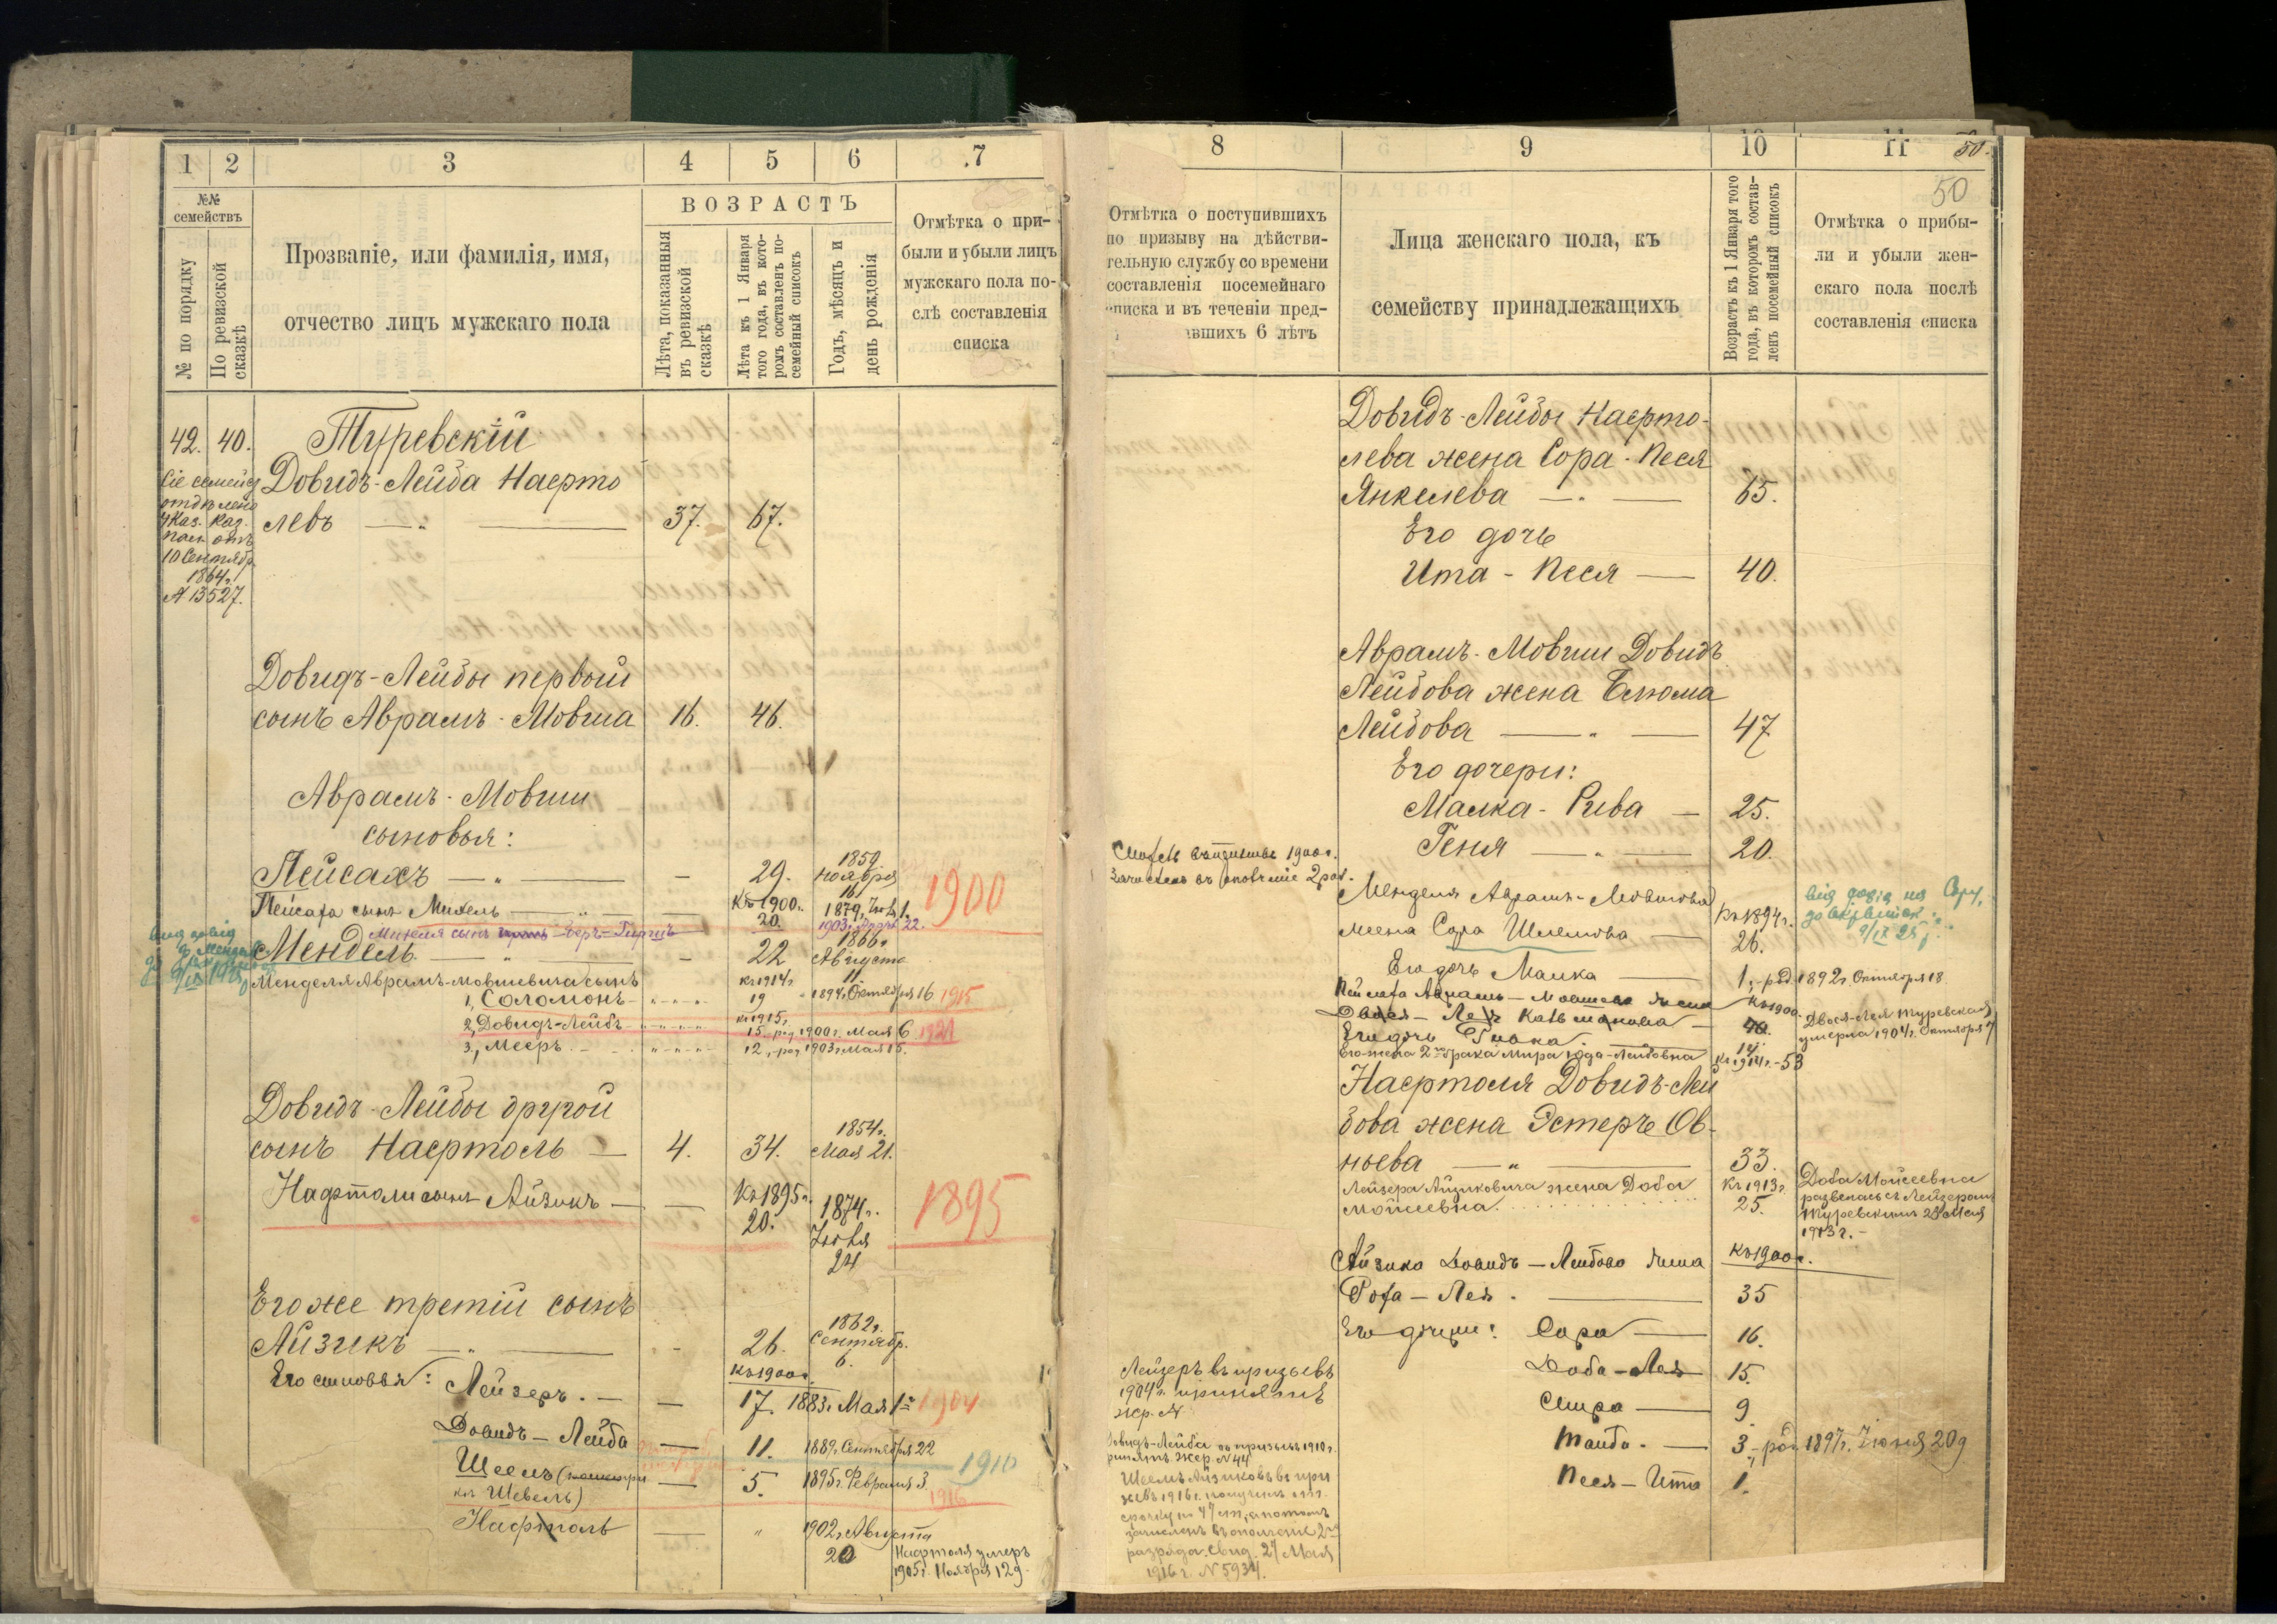 1 2 3 4 5 6 7
№№ семействъ
№ по порядку
По ревизской сказкѣ
Прозваніе, или фамилія, имя,
отчество лицъ мужскаго пола
ВОЗРАСТЪ
Лѣта, показанныя въ ревизской сказкѣ
Лѣта къ 1 Января того года, въ которомъ составленъ посемейный списокъ
Годъ, мѣсяцъ и день рожденія
Отмѣтка о при-
были и убыли лицъ
мужскаго пола по-
слѣ составленія
списка
42. 40. Туревскій
Сіе семейс
отдѣлено
Каз. Пал.
отъ
10 Сентябр.
1864г.
№ 13527.
Довидъ-Лейба Наерто
левъ 37. 67.
Довидъ-Лейбы первый
сынъ Аврамъ-Мовша 16. 46.
Аврамъ-Мовши
сыновья:
Пейсахъ — 29. 1859. Ноября 16
1900
Пейсаха сынъ Михель — Къ 1900г. 20. 1879г. 1.
Михеля сынъ Беръ- 1903г. 22.
Мендель — 22 1866г. Августа 11
9/IX 1925
Менделя Аврамъ-Мовшевича сынъ
1, Соломонъ — Къ 1914г. 19 1894г. Октября 16 1915
2, Довидъ-Лейбъ — Къ 1915г. 15 - род. 1900г. Мая 6 1921
3, Мееръ — 12 - род. 1903г. Мая 15.
Довидъ-Лейбы другой
сынъ Наертоль — 4. 34. 1854г. Мая 21.
Нафтоли сынъ Айзикъ — Къ 1895г. 20. 1874г. 24
1895
Его же третій сынъ
Айзикъ — 26. 1862г. Сентябр. 6.
Его сыновья: Лейзеръ. — Къ 1900г. 17. 1883г. Мая 1 1904
Довидъ-Лейба — 11. 1889г. Сентября 22 1910
Шеель — 5. 1895г. Февраля 3. 1916
Шевель)
Нафтоль — 1902г. Августа 20
Нафтоля умеръ
1905г. Ноября 12д.
8 9 10 11
50.
50
Отмѣтка о поступившихъ
по призыву на дѣйстви-
тельную службу со времени
составленія посемейнаго
списка и въ теченіи пред-
вшихъ 6 лѣтъ
Лица женскаго пола, къ
семейству принадлежащихъ
Возрастъ къ 1 Января того года, въ которомъ составленъ посемейный списокъ
Отмѣтка о прибы-
ли и убыли жен-
скаго пола послѣ
составленія списка
Довидъ-Лейбы Наерто-
лева жена Сора-Песя
Янкелева — 65.
Его дочь
Ита-Песя — 40.
Аврамъ-Мовши Довидъ
Лейбова жена Блюма
Лейбова — 47
Его дочери:
Малка-Рива — 25.
Геня — 20.
1900г.
въ ополченіе 2 раз.
Менделя Аврамъ-Мовшова
жена Сора Шлемова — Къ 1894г. 26.
9/IX 25
Его дочь Малка — 1, - род. 1892г. Октября 18.
Пейсаха Аврамъ-Мовшева жена
Двося-Лея — Къ 1900г. 40.
Двося-Лея Туревская
умерла 1904г. Октября 7
Его дочь — 14.
Его жена 2го брака Мира Юда-Лейбовна Къ 1914г. - 53
Наертоля Довидъ-Лей
бова жена Эстеръ Ов-
ньева — 33.
Лейзера Айзиковича жена Доба Къ 1913г.
Мойшевна 25.
Доба Мойсеевна
развелась съ Лейзеромъ
Туревскимъ 25 Мая
1913г. -
Айзика Довидъ-Лейбова жена Къ 1900г.
Роха-Лея. — 35
Его дочери: Сора — 16.
Доба-Лея 15.
Смира — 9
Тайба. — 3, - род. 1897г. Іюня 20д
Песя-Ита 1.
Лейзеръ въ призывъ
1904г. принятъ
жер. №
Довидъ-Лейба въ призывъ 1910г.
принятъ. Жер. № 44
Шеель Айзиковъ въ при
зывъ 1916г. получилъ от-
срочку по 47 ст., а потомъ
зачисленъ въ ополченіе 2го
разряда. Свид. 27 Мая
1916г. № 5934.